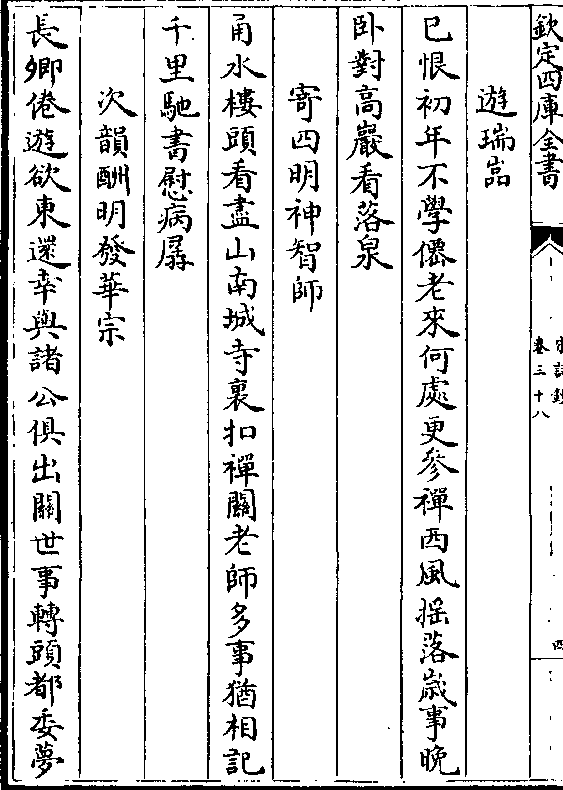 欽定四庫全書
卷三十八
四
遊瑞嵓
已恨初年不學僊老來何處更參禪西風揺落歳事晩
卧對高巖看落泉
寄四明神智師
甬水樓頭看盡山南城寺裏扣禪關老師多事猶相記
千里馳書慰病孱
次韻酬明發華宗
長卿倦遊欲東還幸與諸公俱出關世事轉頭都委夢